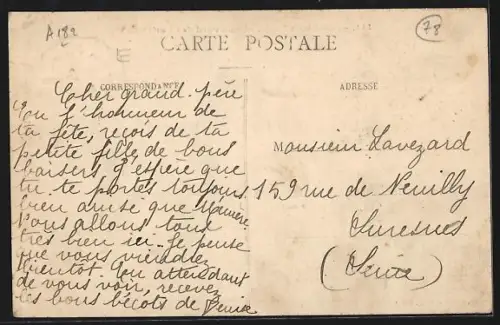 A 182
78
E
CARTE POSTALE
CORRESPONDANCE
ADRESSE
Cher grand-père
En l'honneur de
ta fête, reçois de ta
petite fille de bons
baisers J'espère que
tu te portes toujours
bien ainsi que Mémère
Nous allons tous
très bien ici. Je pense
que vous viendrez
bientôt. En attendant
de vous voir, recevez
les bons bécots de Denise
Monsieur Lavezard
159 rue de Neuilly
Suresnes
(Seine)